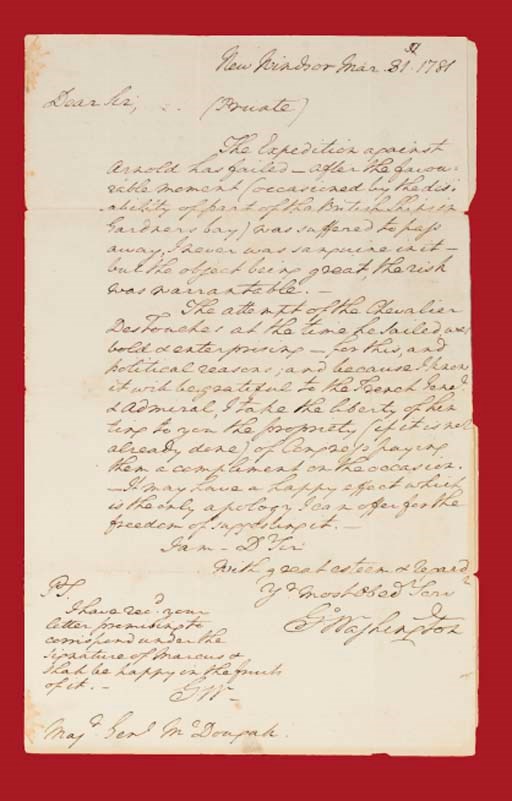 New Windsor Mar 31st. 1781
Dear Sir, (Private)
The Expedition against
Arnold has failed — after the favou-
rable moment (occasioned by the dis-
ability of part of the British Ships in
Gardners bay) was suffered to pass
away, I never was sanguine in it —
but the object being great, the risk
was warrantable. —
The attempt of the Chevalier
Destouches at the time he sailed was
bold & enterprising — for this, and
political reasons; and because I know
it will be grateful to the French Genl.
& Admiral, I take the liberty of hin
ting to you the propriety (if it is not
already done) of Congress paying
them a compliment on the occasion.
— It may have a happy effect which
is the only apology I can offer for the
freedom of suggesting it. —
I am — Dr Sir
With great esteem & regard
Yr most Obedt Serv
Go Washington
PS.
I have recd. your
letter promising to
correspond under the
signature of Marcus &
shall be happy in the fruits
of it. —
GW —
Majr. Genl. McDougall.